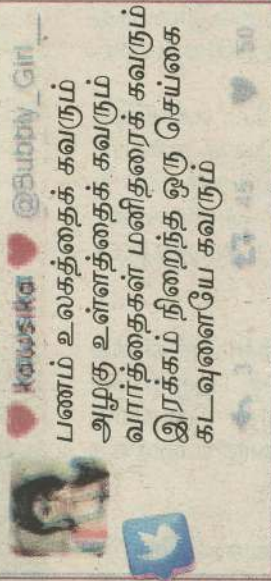 kowsika @Bubbly_Girl__
பணம் உலகத்தைக் கவரும்
அழகு உள்ளத்தைக் கவரும்
வார்த்தைகள் மனிதரைக் கவரும்
இரக்கம் நிறைந்த ஒரு செய்கை
கடவுளையே கவரும்
3 45 50